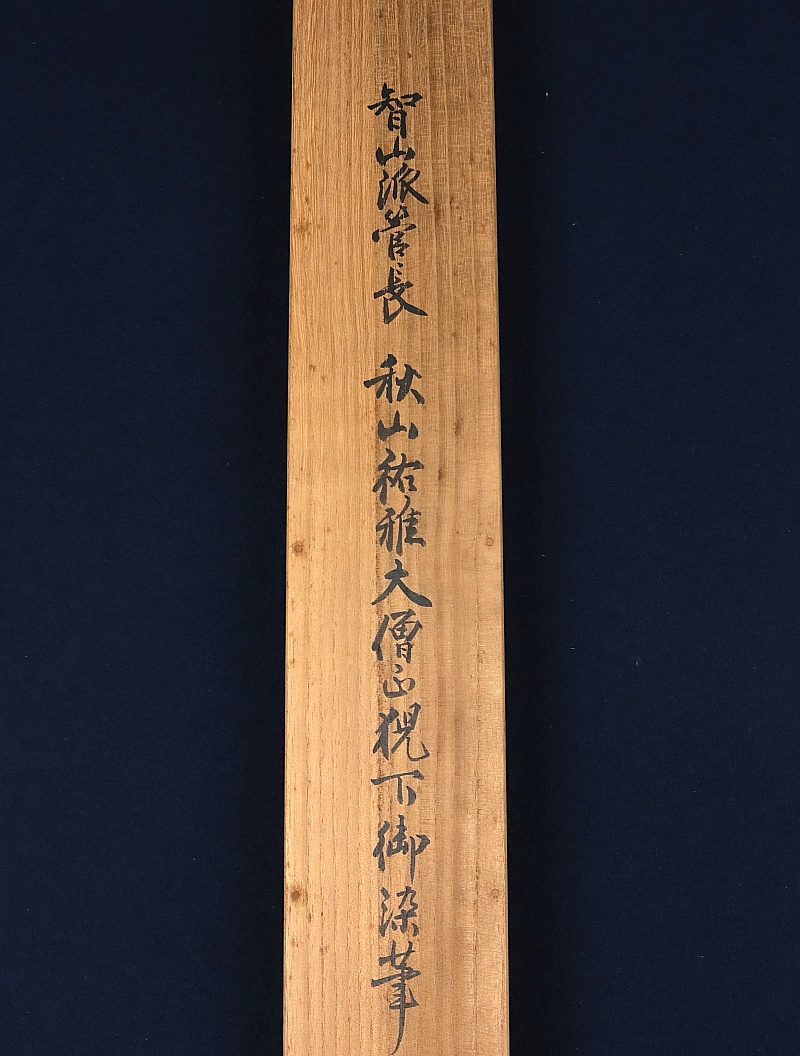 智山派管長 秋山祐雅大僧正猊下御染筆